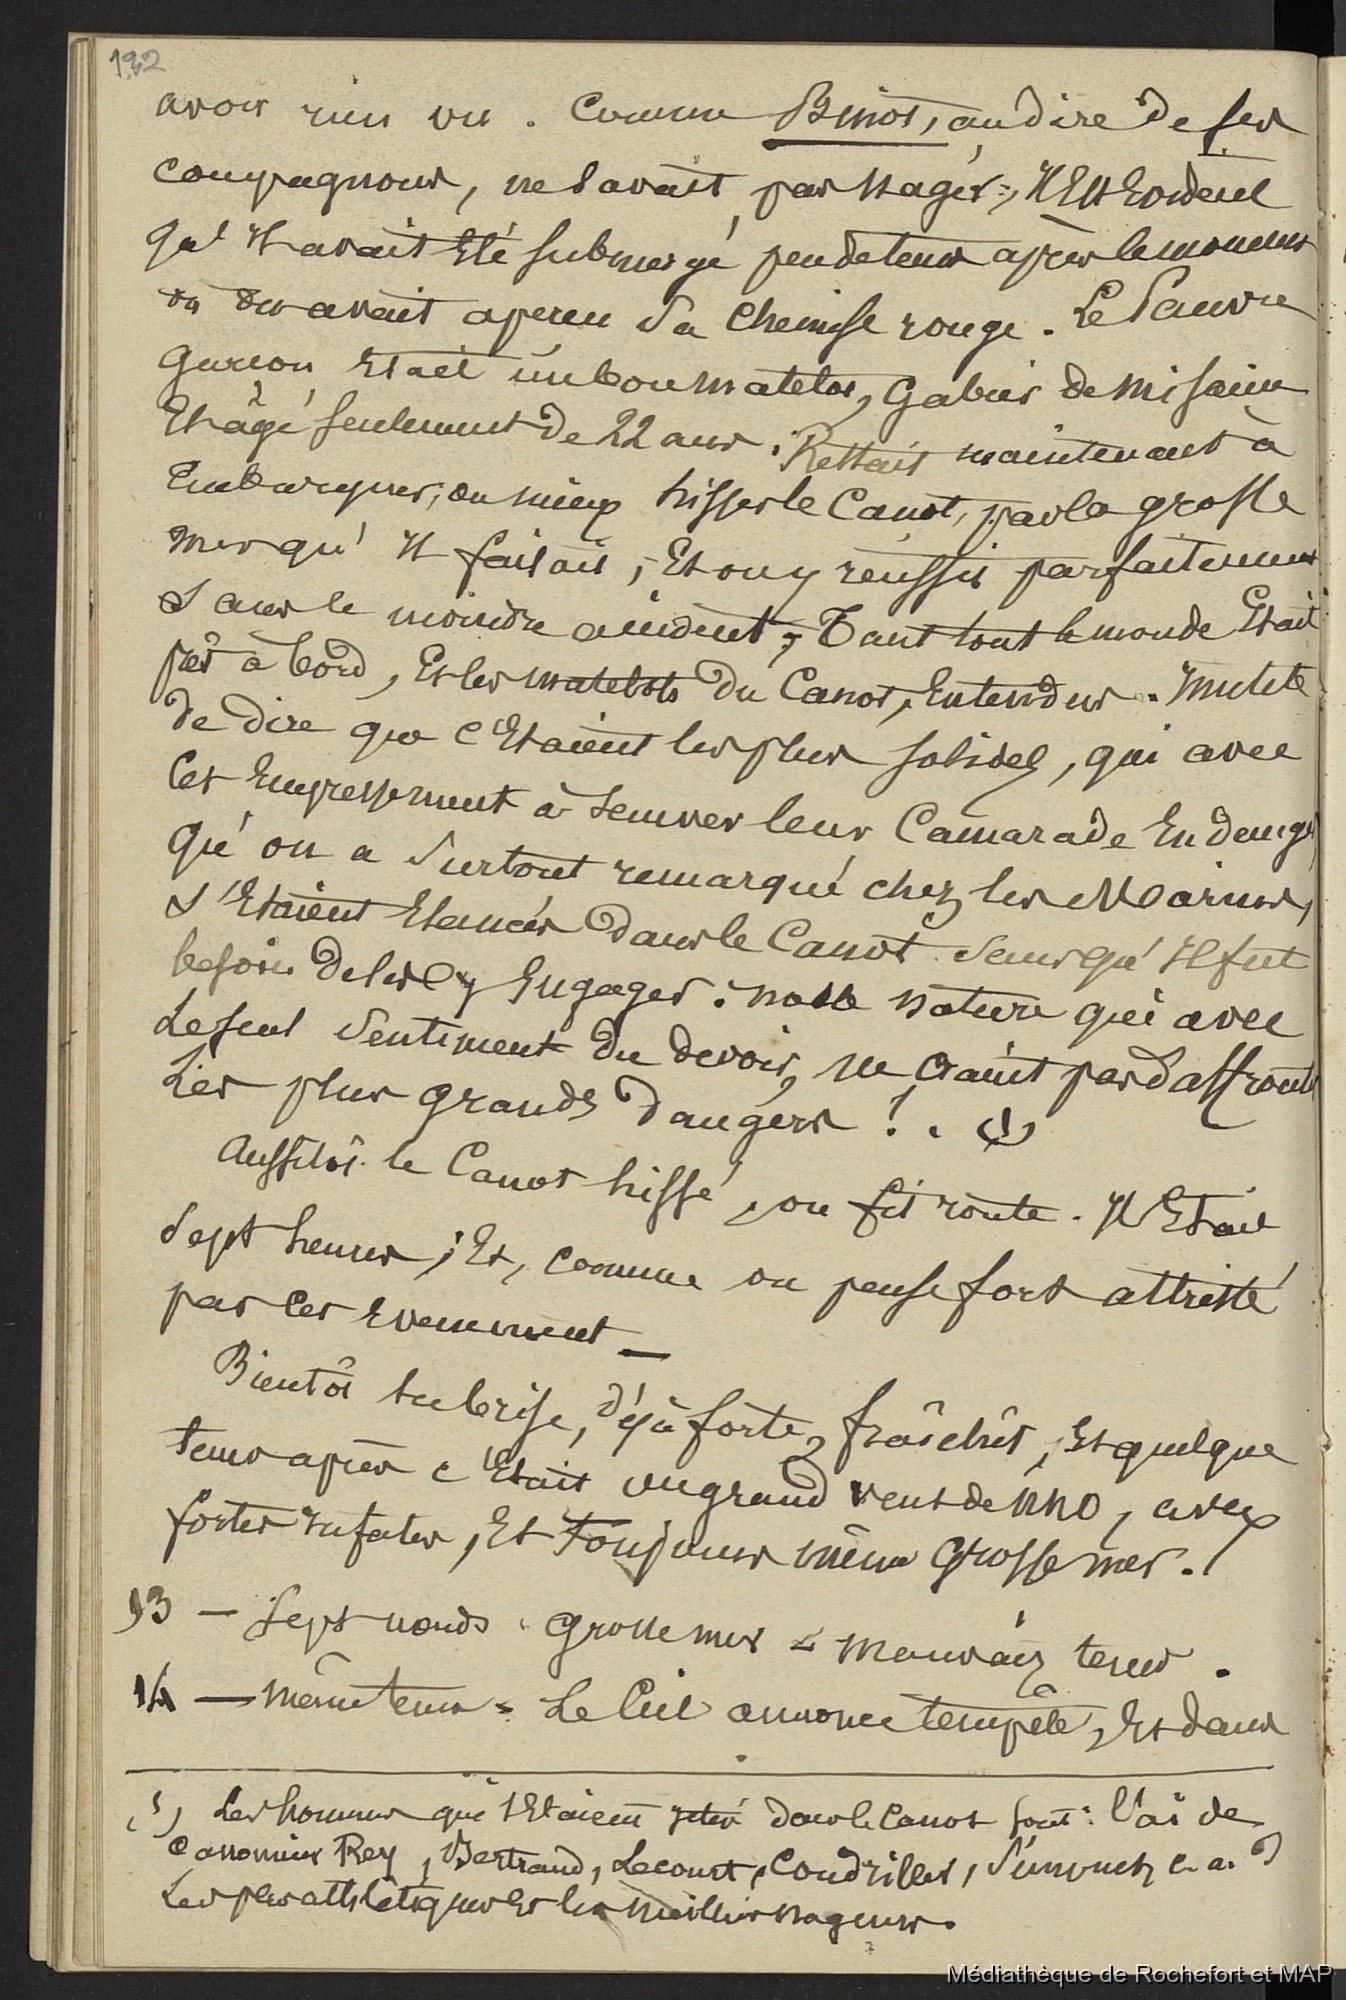 192
avoir rien vu. Comme Binot, au dire de ses
compagnons, ne savait pas nager, Il Est Evident
qu'Il avait Eté submergé peu de tems après le moment
où on avait aperçu sa chemise rouge. Le Pauvre
garçon Etait un bon matelot, gabier de misaine
Et âgé seulement de 22 ans. Restait maintenant à
Embarquer, ou mieux hisser le Canot, par la grosse
mer qu'Il faisait, Et on y réussit parfaitement
sans le moindre accident, Tant tout le monde Etait
prêt à bord, Et les matelots du Canot, Entendus. Inutile
de dire que c'Etaient les plus solides, qui avec
cet Empressement à sauver leur Camarade En danger
qu'on a surtout remarqué chez les Marins,
s'Etaient Elancés dans le Canot sans qu'Il fut
besoin de les y Engager. noble nature qui avec
le seul sentiment du devoir, ne craint pas d'affronter
Les plus grands dangers !. (1)
Aussitôt le Canot hissé, on fit route. Il Etait
sept heures, Et, comme on pense fort attristé
par cet Evenement_
Bientôt la brise, déjà forte, fraîchit, Et quelque
tems après c'Etait un grand vent de NNO, avec
fortes rafales, Et Toujours même grosse mer.
13 — Sept nœuds. Grosse mer - mauvais tems.
14 — même tems - Le Ciel annonce tempête, Et dans
(1) Les hommes qui s'Etaient jetés dans le Canot sont:
Canonnier Rey, Bertrand, Lecourt, Coudrillet,
Les plus athlétiques Et les meilleurs nageurs.
Médiathèque de Rochefort et MAP